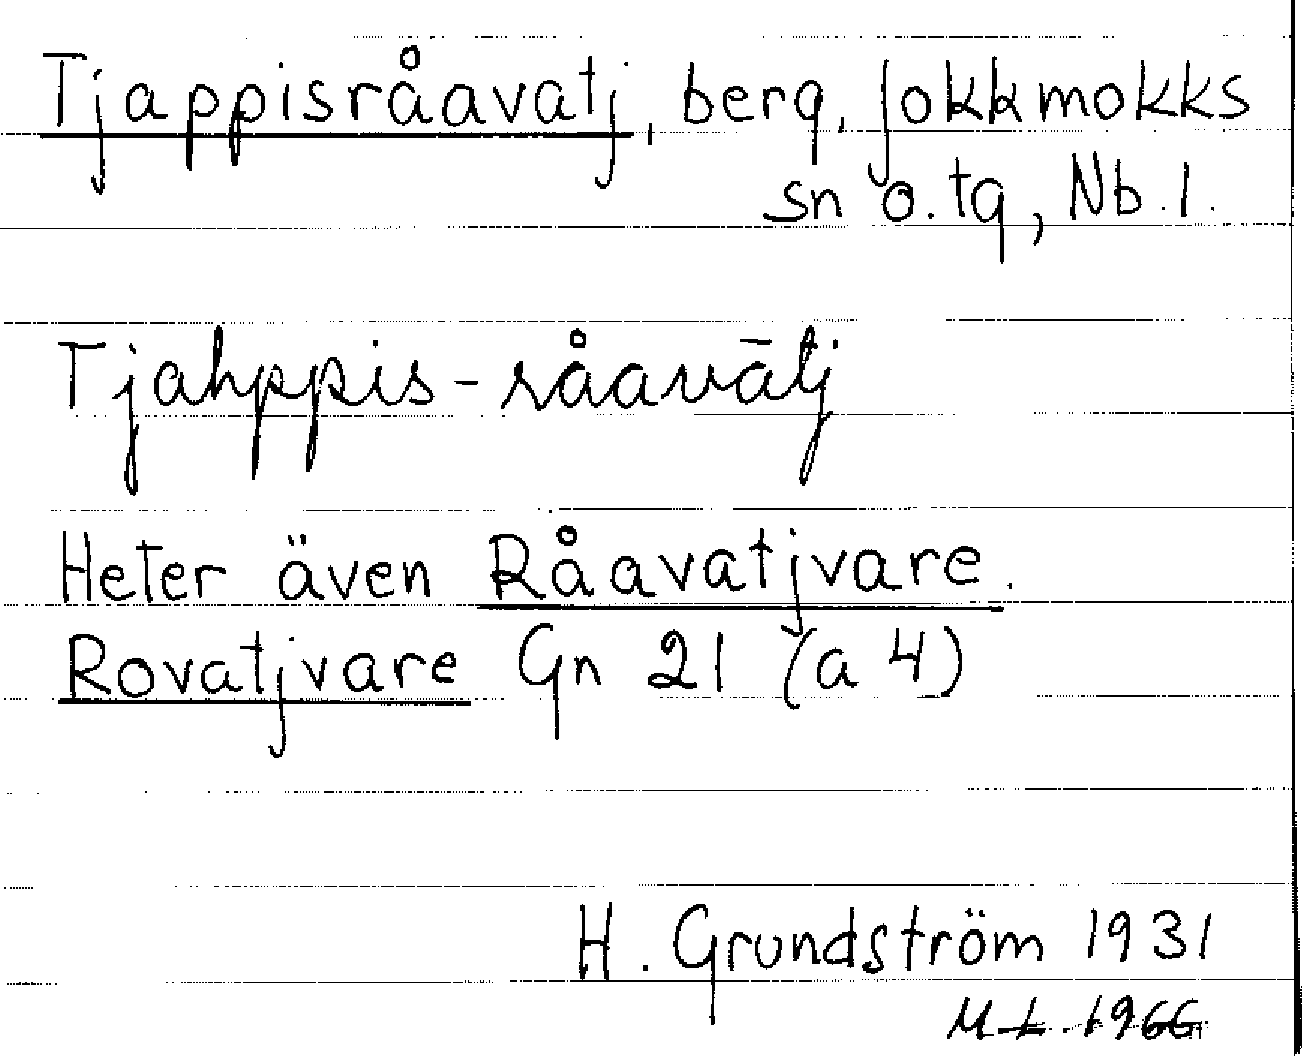 Tjappisråavatj, berg, Jokkmokks
sn o. tg, Nb. l.
Tjahppis-råavātj
Heter även Råavatjvare.
Rovatjvare Gn 21 (a 4)
H. Grundström 1931
M L. 1966